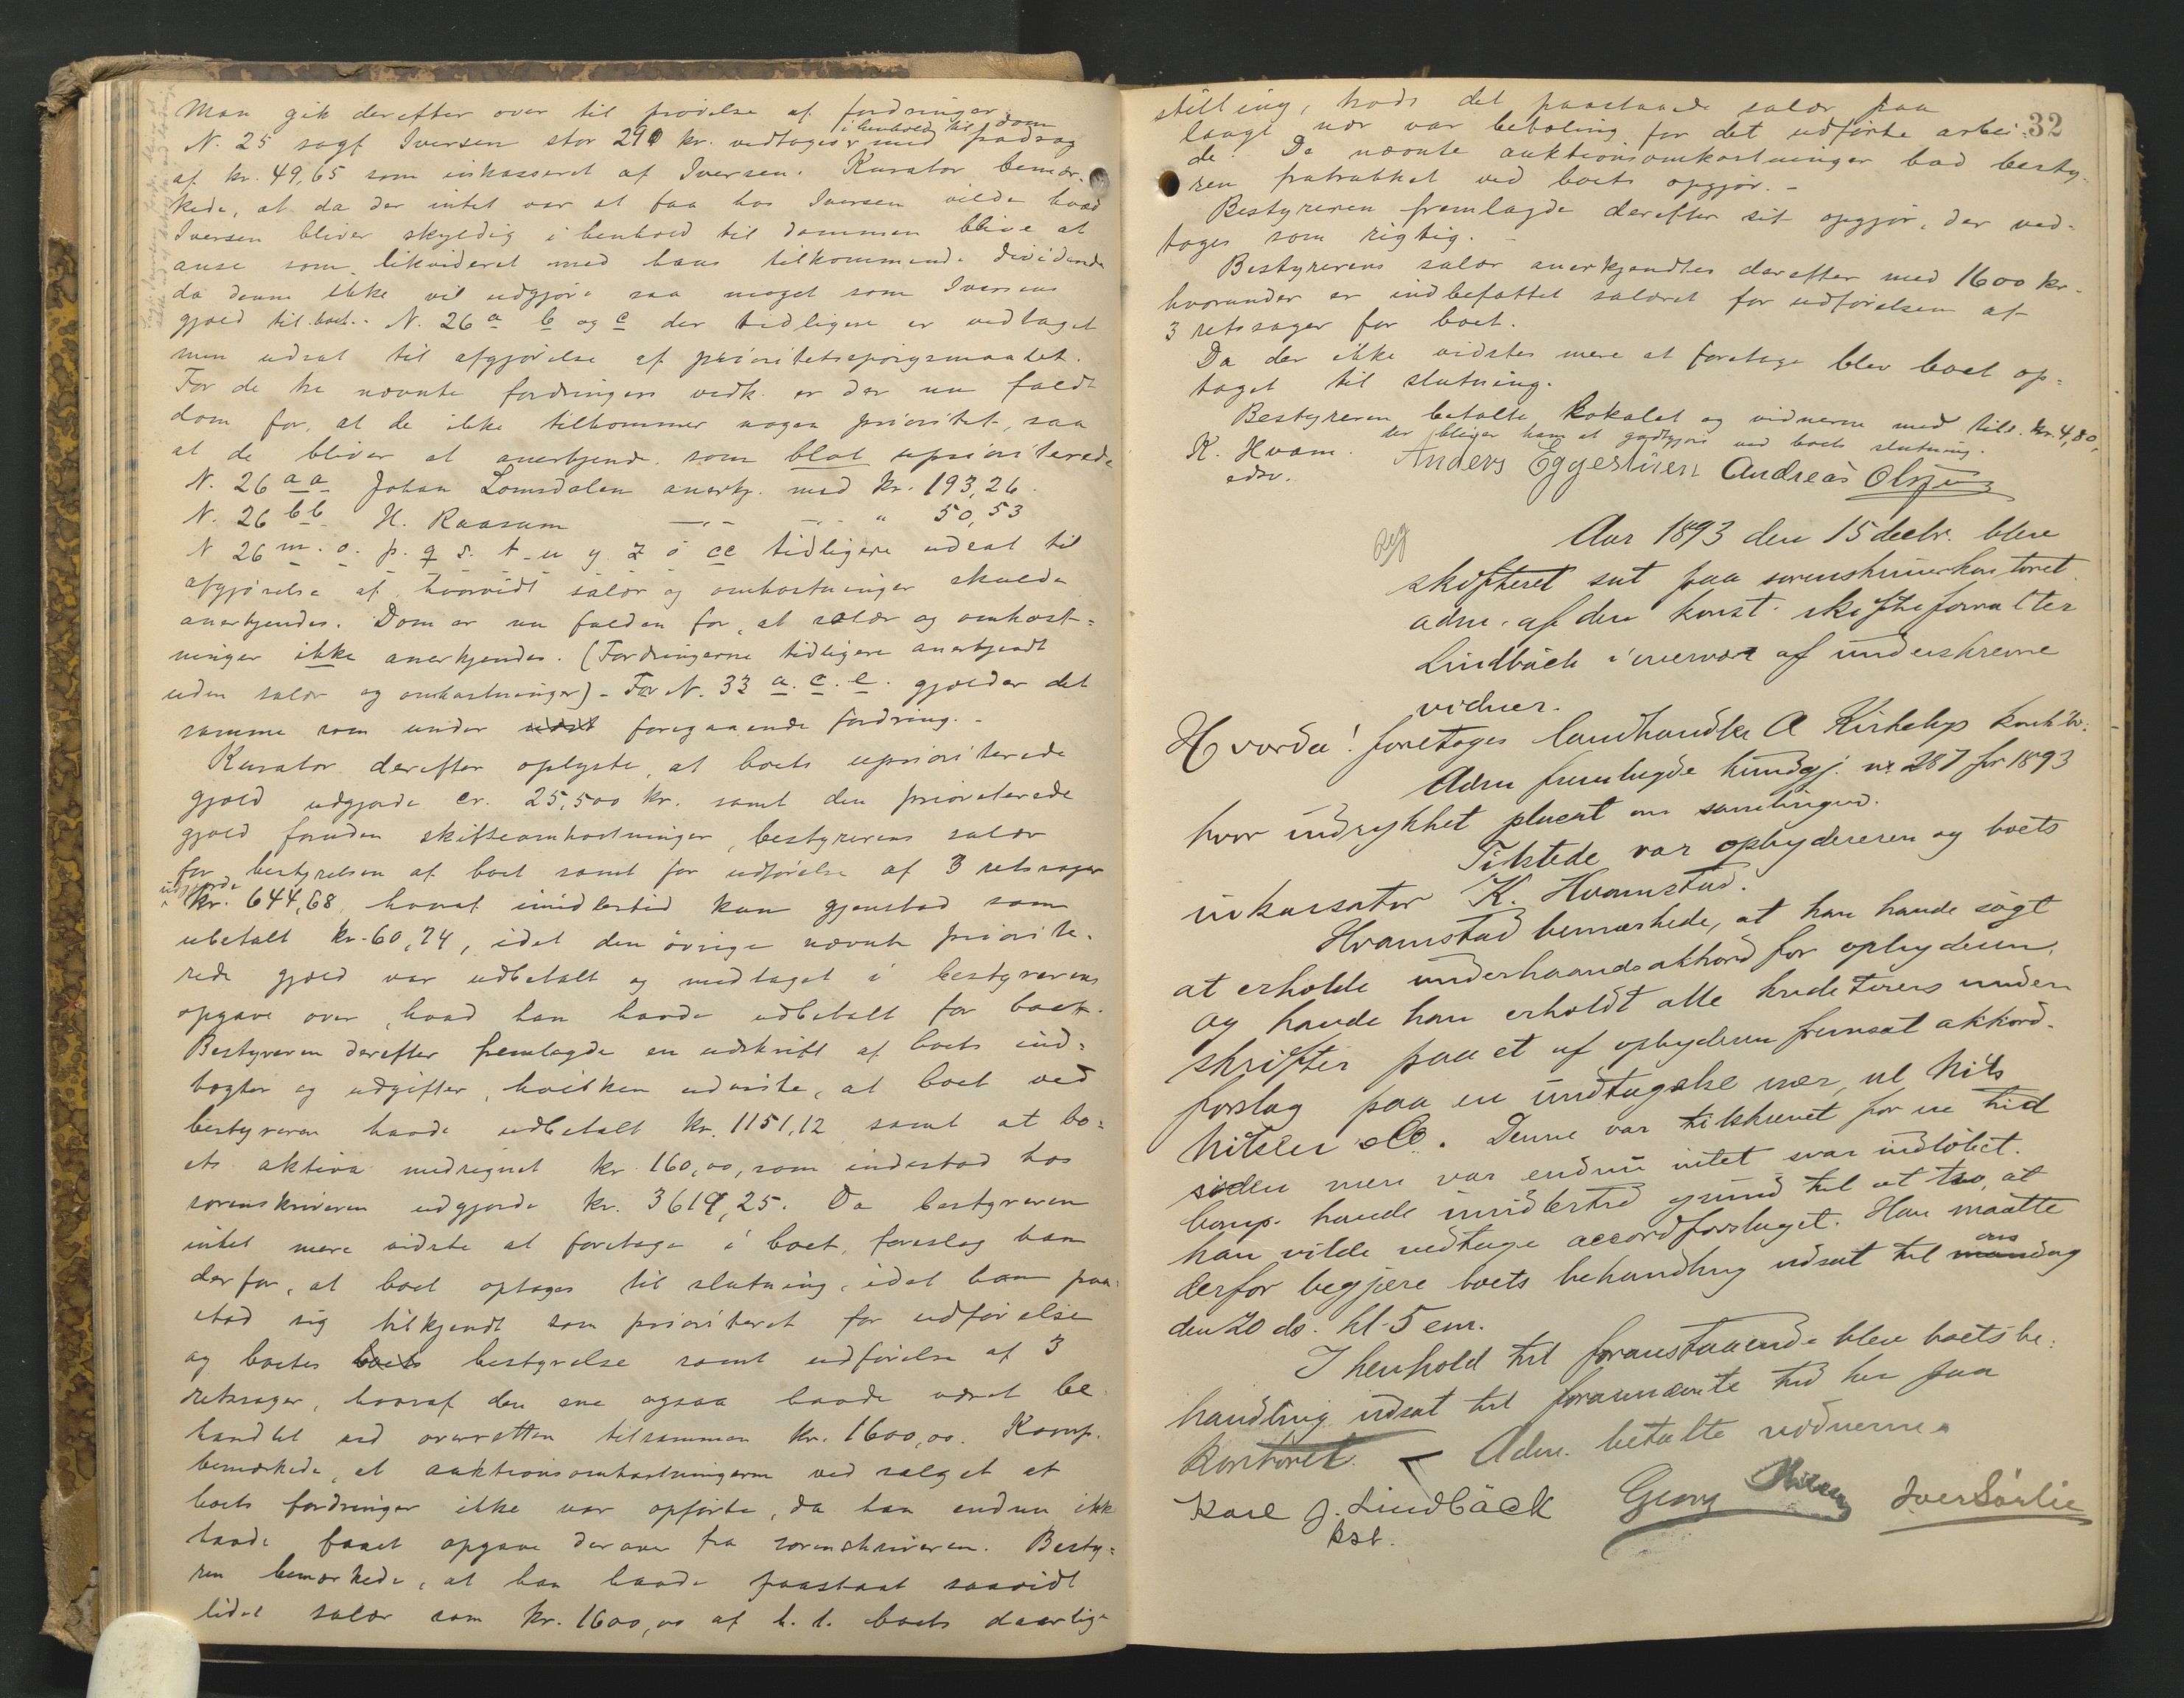 Man gik derefter over til prövelse af fordringer.
N. 25 sagf Iversen stor 290 kr. vedtoges i henhold til dom med fradrag
af kr. 49,65 som inkasseret af Iversen. Kurator bemær-
kede, at da der intet var at faa hos Iversen vilde hvad
Iversen bliver skyldig i henhold til dommen blive at
anse som likvideret med hans tilkommende dividende
da denne ikke vil udgjöre saa meget som Iversens
gjæld til boet. - N. 26 a b og c der tidligere er vedtaget
men udsat til afgjörelse af prioritetsspörgsmaalet.
For de tre nævnte fordringers vedk. er der nu faldt
dom for, at de ikke tilkommer nogen prioritet, saa
at de bliver at anerkjende som blot uprioriterede
N. 26 aa Johan Lomsdalen anerkj. med kr. 193,26.
N. 26 bb H. Raasum —"— —"— " 50,53
N 26 m. o. p. q s. t. u y z ö cc tidligere udsat til
afgjörelse af hvorvidt salær og omkostninger skulde
anerkjendes. Dom er nu falden for, at salær og omkost=
ninger ikke anerkjendes. (Fordringerne tidligere anerkjendt
uden salær og omkostninger) - For N. 33 a. c. e. gjælder det
samme som under foregaaende fordring. -
Kurator derefter oplyste, at boets uprioriterede
gjæld udgjorde cr. 25,500 kr. samt den prioriterede
gjæld foruden skifteomkostninger, bestyrerens salær
for bestyrelsen af boet samt for udförelse af 3 retssager
udgjorde kr. 644,68 hvoraf imidlertid kun gjenstod som
ubetalt kr. 60,74, idet den övrige nævnte priorite-
rede gjæld var udbetalt og medtaget i bestyrerens
opgave over, hvad han havde udbetalt for boet.
Bestyreren derefter fremlagde en udskrift af boets ind=
tægter og udgifter, hvilken udviste, at boet ved
bestyreren havde udbetalt kr. 1151,12 samt at bo=
ets aktiva medregnet kr. 160,00, som indestod hos
sorenskriveren udgjorde kr. 3619,25. Da bestyreren
intet mere vidste at foretage i boet, foreslog han
derfor, at boet optages til slutning, idet han paa-
stod sig tilkjendt som prioriteret for udförelse
og boets boets bestyrelse samt udförelse af 3
retssager, hvoraf den ene ogsaa havde været be-
handlet ved overretten tilsammen kr. 1600,00. Komp.
bemærkede, at auktionsomkostningerne ved salget af
boets fordringer ikke var opförte, da han endnu ikke
havde faaet opgave derover fra sorenskriveren. Besty=
ren bemærkede, at han havde paastaat saavidt
lidet salær som kr. 1600,00 af h. t. boets daarlige
32
stilling, trods det paastaaede salær paa
langt nær var betaling for det udförte arbei-
de. De nævnte auktionsomkostninger bad besty-
ren fratrukket ved boets opgjör. -
Bestyreren fremlagde derefter sit opgjör, der ved=
toges som rigtig. -
Bestyrerens salær anerkjendtes derefter med 1600 kr.
hvorunder er indbefattet salæret for udförelsen af
3 retssager for boet.
Da der ikke vidstes mere at foretage blev boet op=
taget til slutning.
Bestyreren betalte lokalet og vidnerne med tils. kr. 4,80,
der bliver ham at godtgjöre ved boets slutning.
K. Hvam. Anders Eggestuen Andreas Olsen
edsv.
Reg
Aar 1893 den 15 decbr. blev
skifteret sat paa sorenskriverkontoret
adm. af den konst. skifteforvalter
Lindbäck i overvær af underskrevne
vidner.
Hvorda! foretoges landhandler A Kirkebys konk.bo.
Adm fremlagde kundgj. nr 287 for 1893
hvor indrykket placat om samlingen.
Tilstede var opbyderen og boets
inkassator K. Hvamstad.
Hvamstad bemærkede, at han havde sögt
at erholde underhaandsakkord for opbyderen,
og havde han erholdt alle kreditorers under
skrifter paa et af opbyderen fremsat akkord-
forslag paa en undtagelse nær, nl Nils
Nilsen & Co. Denne var tilskrevet for en tid
siden men var endnu intet svar indlöbet.
Comp. havde imidlertid grund til at tro, at
han vilde vedtage accordforslaget. Han maatte
derfor begjære boets behandling udsat til onsdag
den 20 ds. kl 5 em.
I henhold til foranstaaende blev boets be-
handling udsat til forannævnte tid her paa
kontoret. — Adm. betalte vidnerne.
Karl J. Lindbäck Georg Nilsen Iver Sörlie
kst.